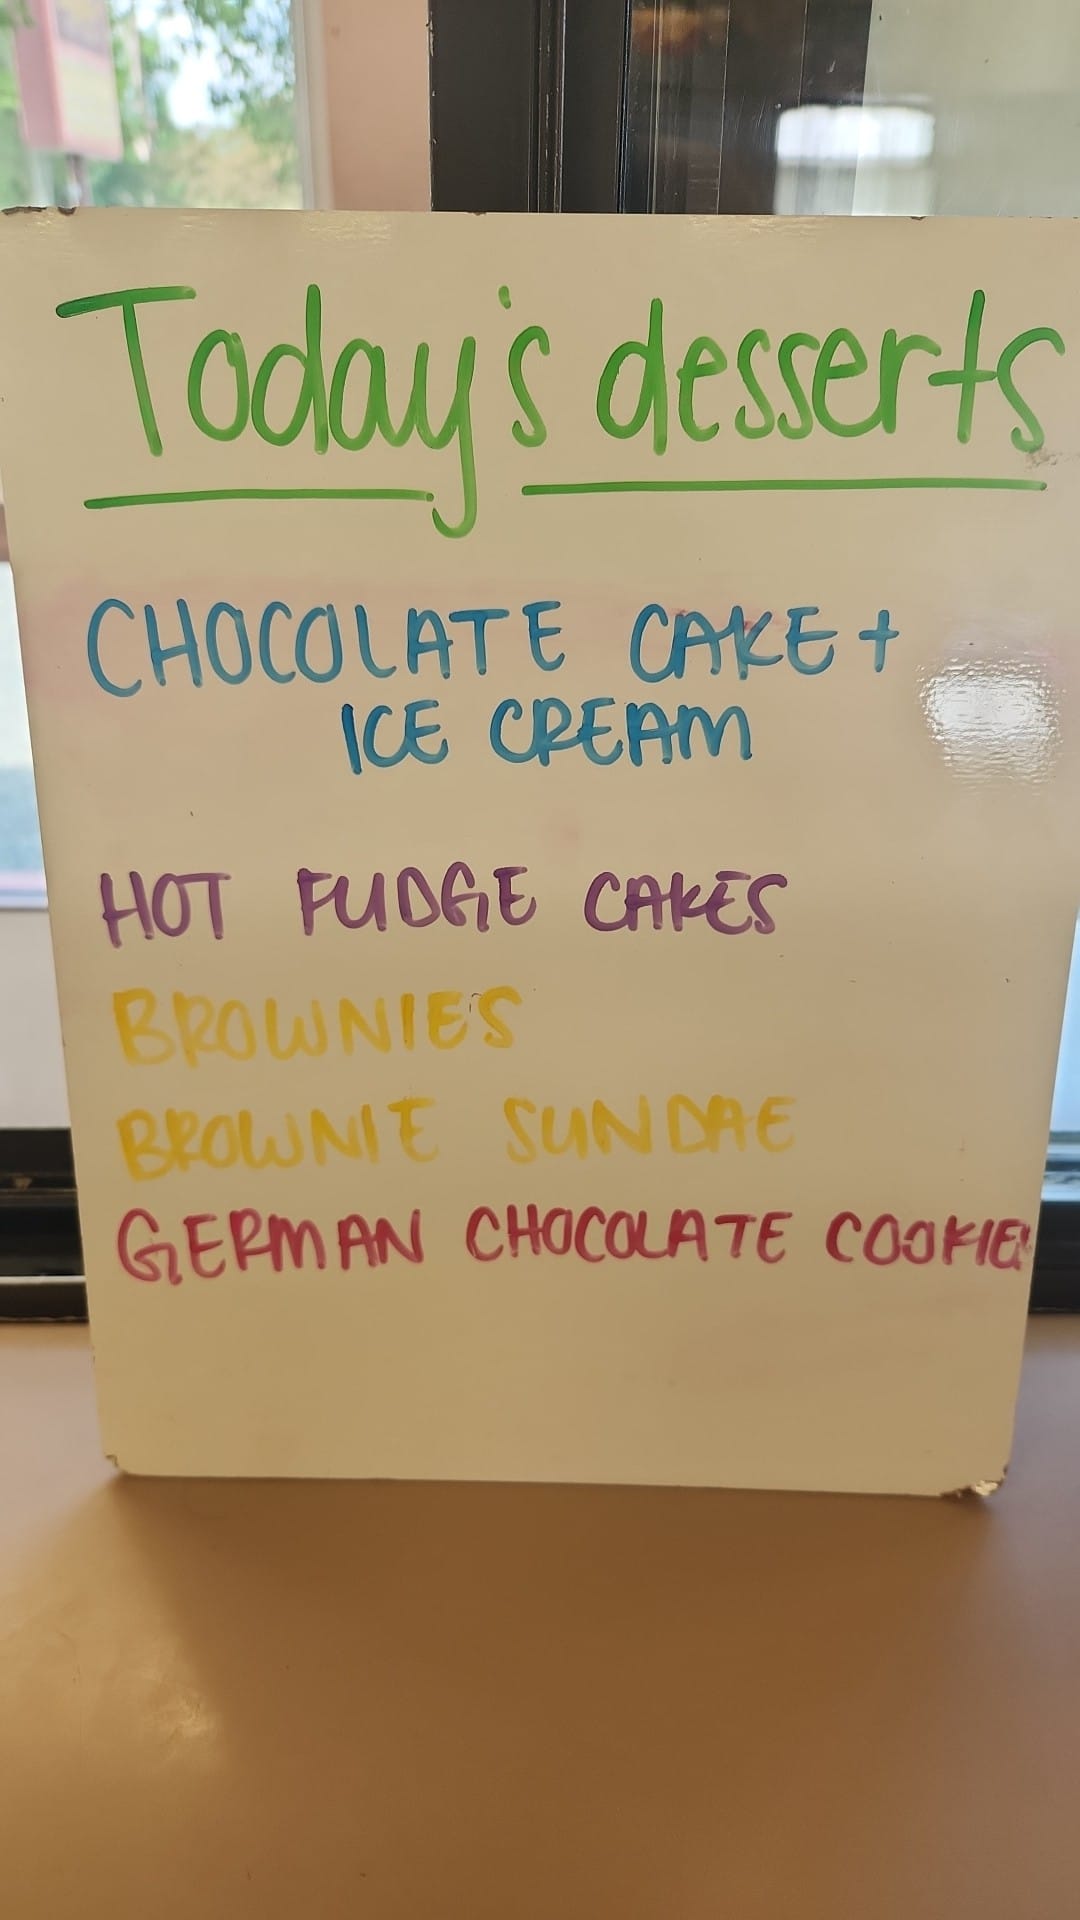 Today's desserts
CHOCOLATE CAKE +
ICE CREAM
HOT FUDGE CAKES
BROWNIES
BROWNIE SUNDAE
GERMAN CHOCOLATE COOKIES